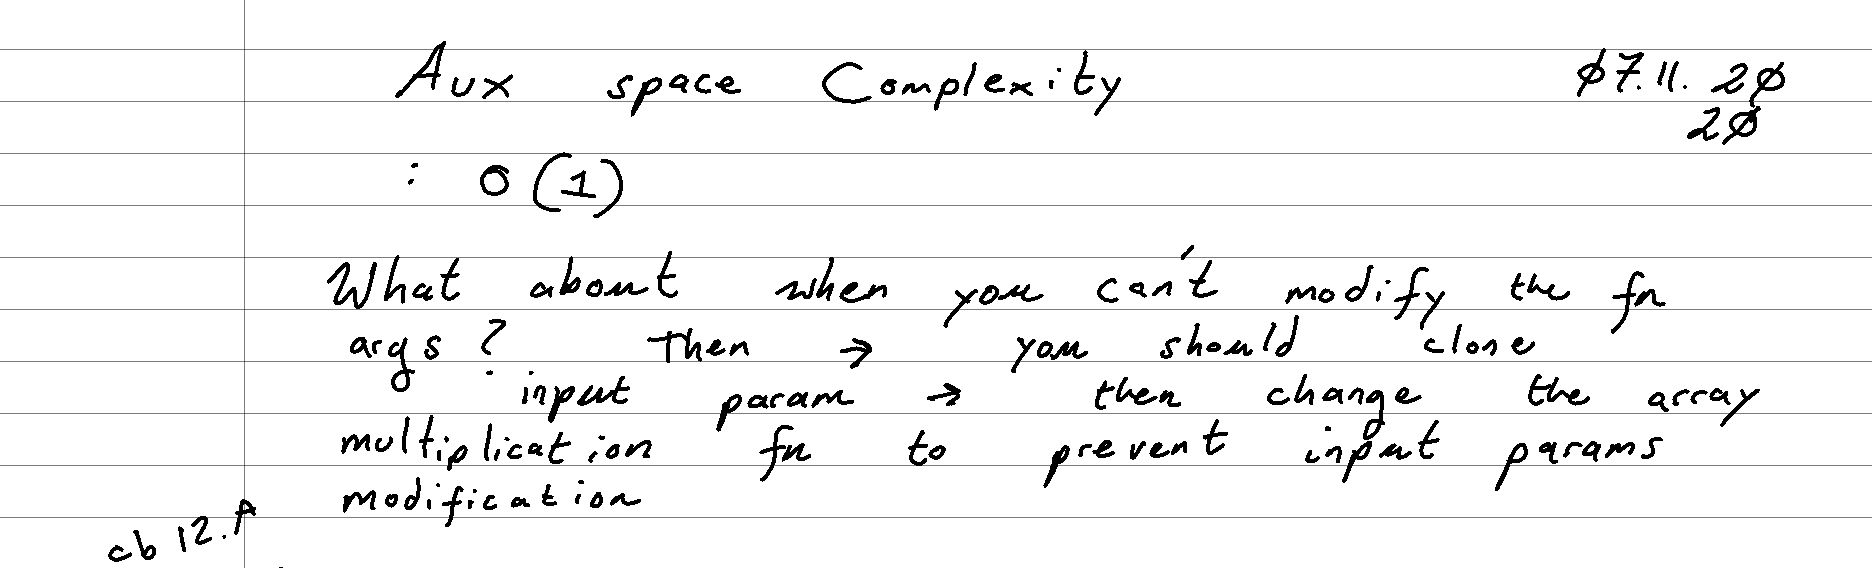 Aux space Complexity
07.11.20
20
: O(1)
What about when you can't modify the fn
args? Then → you should clone
input param → then change the array
multiplication fn to prevent input params
modification
cb 12.A